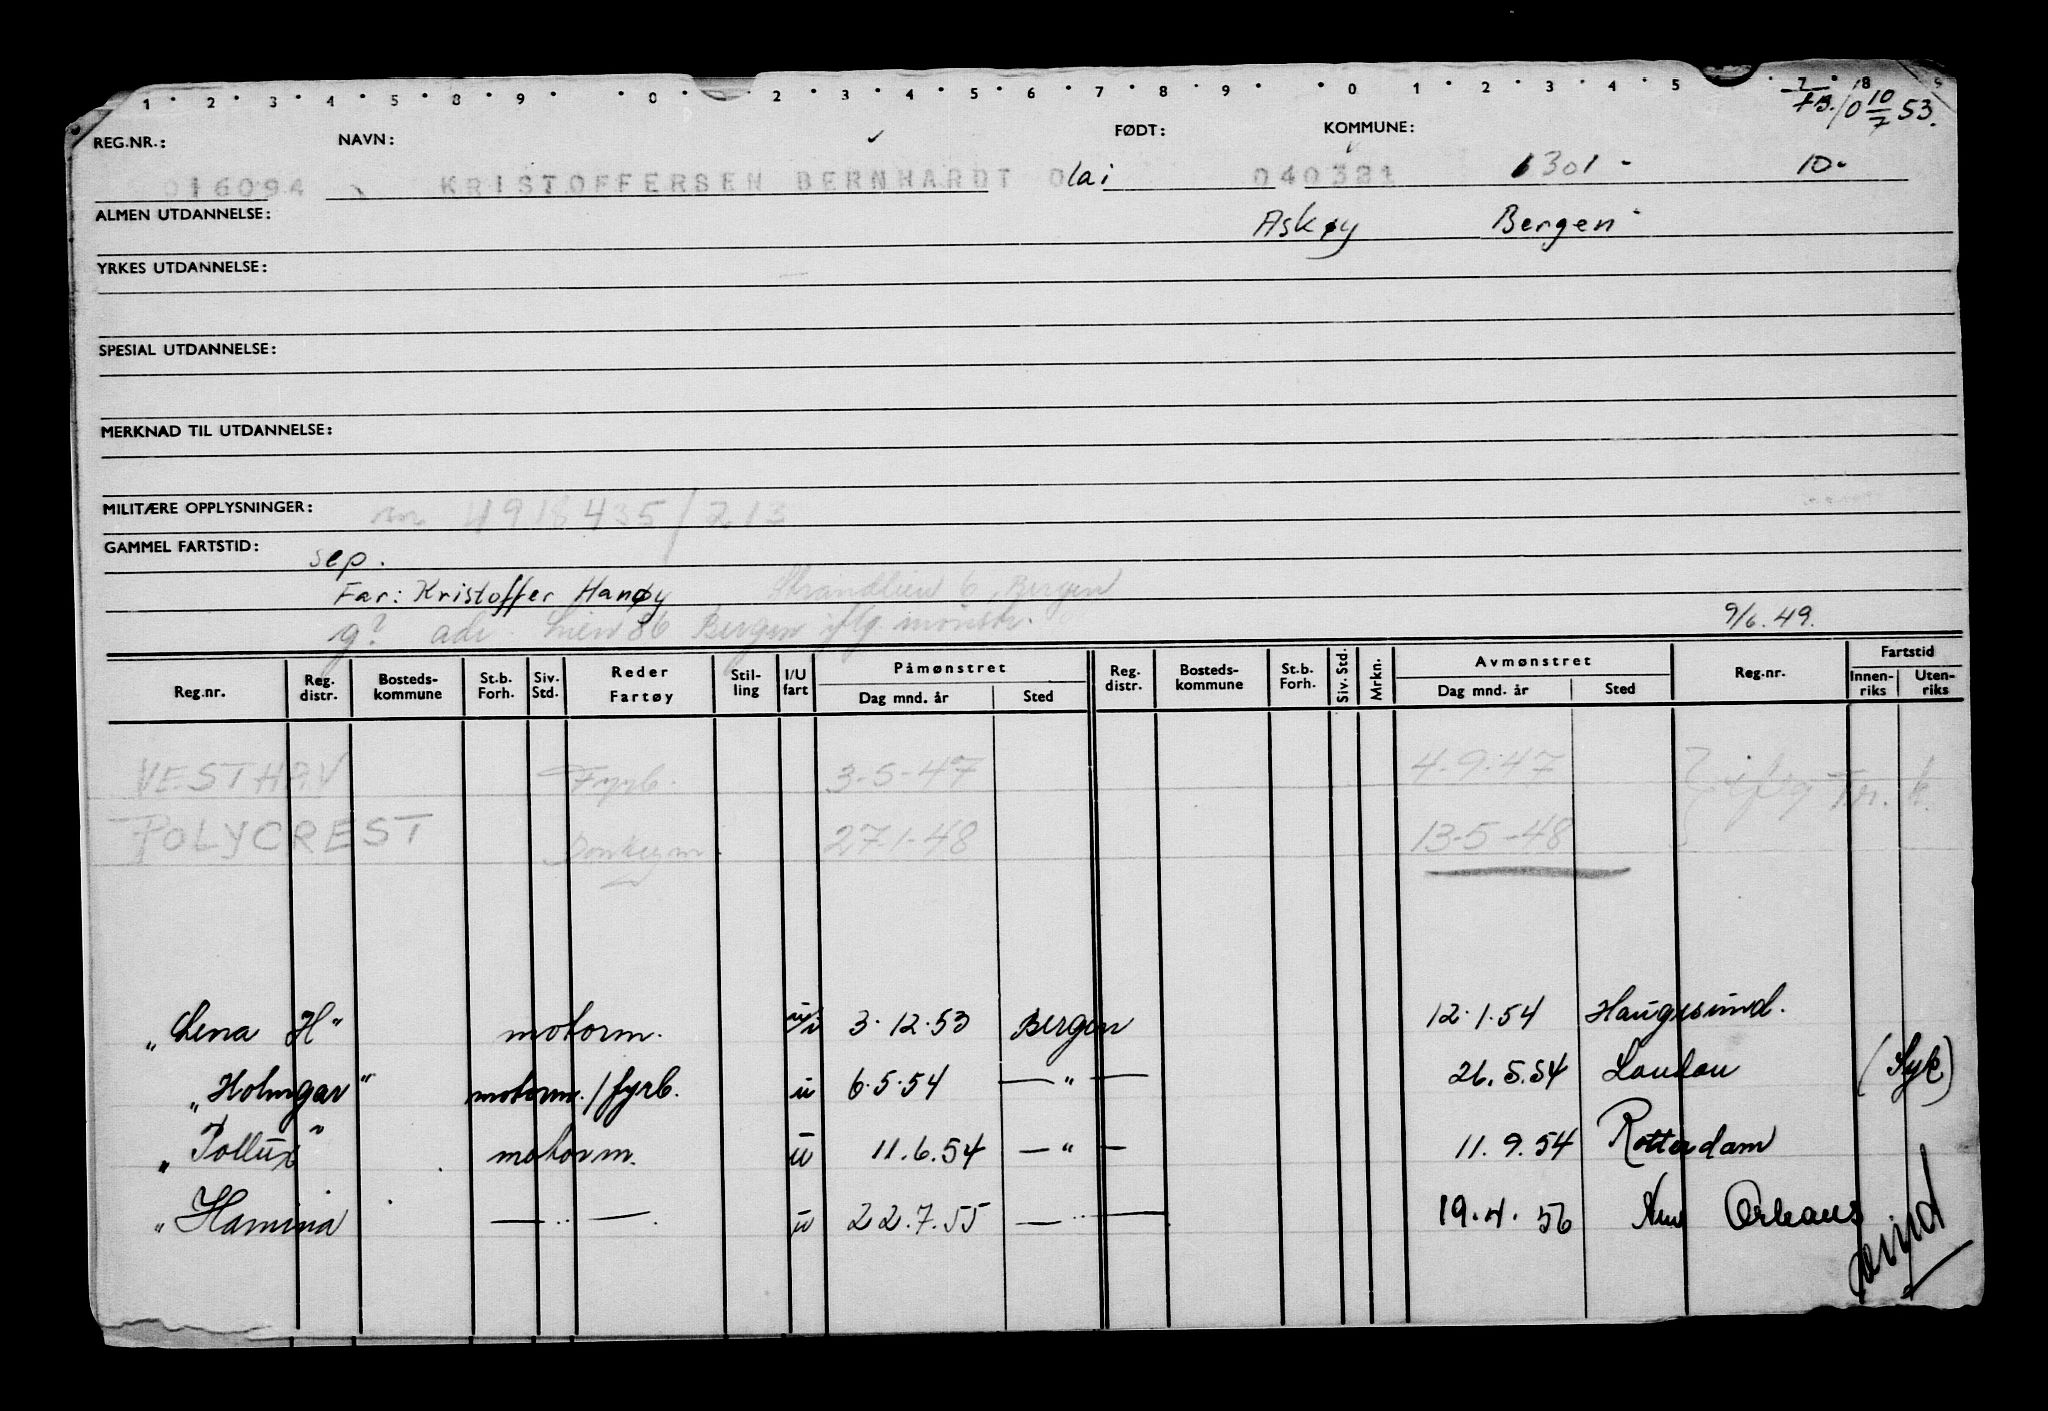 1 · 2 · 3 · 4 · 5 · 8 · 9 · · 0 · 2 · 3 · 4 · 5 · 6 · 7 · 8 · 9 · · 0 · 1 · 2 · 3 · 4 · 5 · 7 · 8 9
10/7 53.
REG.NR.: NAVN: FØDT: KOMMUNE:
016094 KRISTOFFERSEN BERNHARDT Olai 040321 1301 - 10-
ALMEN UTDANNELSE: Askøy Bergen
YRKES UTDANNELSE:
SPESIAL UTDANNELSE:
MERKNAD TIL UTDANNELSE:
MILITÆRE OPPLYSNINGER: 4918435/213
GAMMEL FARTSTID: sep.
Far: Kristoffer Hanøy Strandlien 6, Bergen
g? adr. Lien 86 Bergen iflg. mønstr. 9/6.49.
Reg.nr. Reg. distr. Bosteds-kommune St.b. Forh. Siv. Std. Reder Fartøy Stil-ling I/U fart Påmønstret Dag mnd. år Sted Reg. distr. Bosteds-kommune St.b. Forh. Siv. Std. Mrkn. Avmønstret Dag mnd. år Sted Reg.nr. Fartstid Innen-riks Uten-riks
VESTHAV Fyrb. 3-5-47 4-9-47 iflg
POLYCREST Donkeym. 27-1-48 13-5-48
"Lena H" motorm. u/i 3.12.53 Bergen 12.1.54 Haugesund.
"Holmgar" motorm./fyrb. u 6.5.54 — " — 26.5.54 London (Syk)
"Pollux" motorm. u 11.6.54 — " — 11.9.54 Rotterdam
"Hamina — " — u 22.7.55 — " — 19.4.56 New Orleans